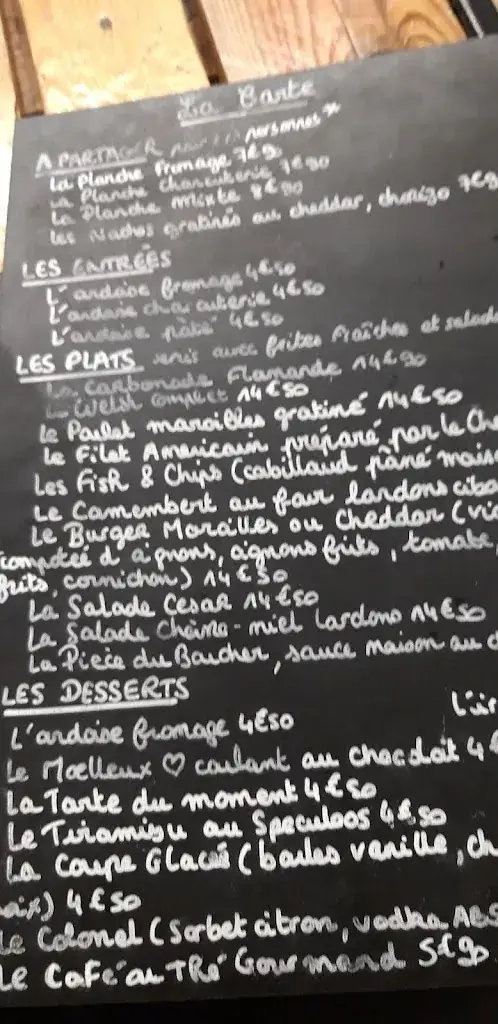 La Carte
A PARTAGER personnes*
La Planche Fromage 7€90
La Planche Charcuterie 7€90
La Planche Mixte 8€90
Les Nachos gratinés au cheddar, chorizo 7€9
LES ENTRÉES
L'ardoise fromage 4€50
L'ardoise charcuterie 4€50
L'ardoise pâté 4€50
LES PLATS servis avec frites fraîches et salade
La Carbonade Flamande 14€90
Le Welsh complet 14€50
Le Poulet maroilles gratiné 14€50
Le Filet Americain préparé par le Ch
Les Fish & Chips (cabillaud pâné mais
Le Camembert au four lardons cibo
Le Burger Maroilles ou Cheddar (vi
compotée d'oignons, oignons frits, tomate,
frits, cornichon) 14€50
La Salade Cesar 14€50
La Salade Chèvre-miel lardons 14€50
La Pièce du Boucher, sauce maison au c
LES DESSERTS
L'ardoise fromage 4€50 L'ir
Le Moelleux ♡ coulant au chocolat 4€
La Tarte du moment 4€50
Le Tiramisu au Speculoos 4€50
La Coupe Glacée (boules vanille, ch
oix) 4€50
Le Colonel (Sorbet citron, vodka ABS
Le Café ou Thé Gourmand 5€90